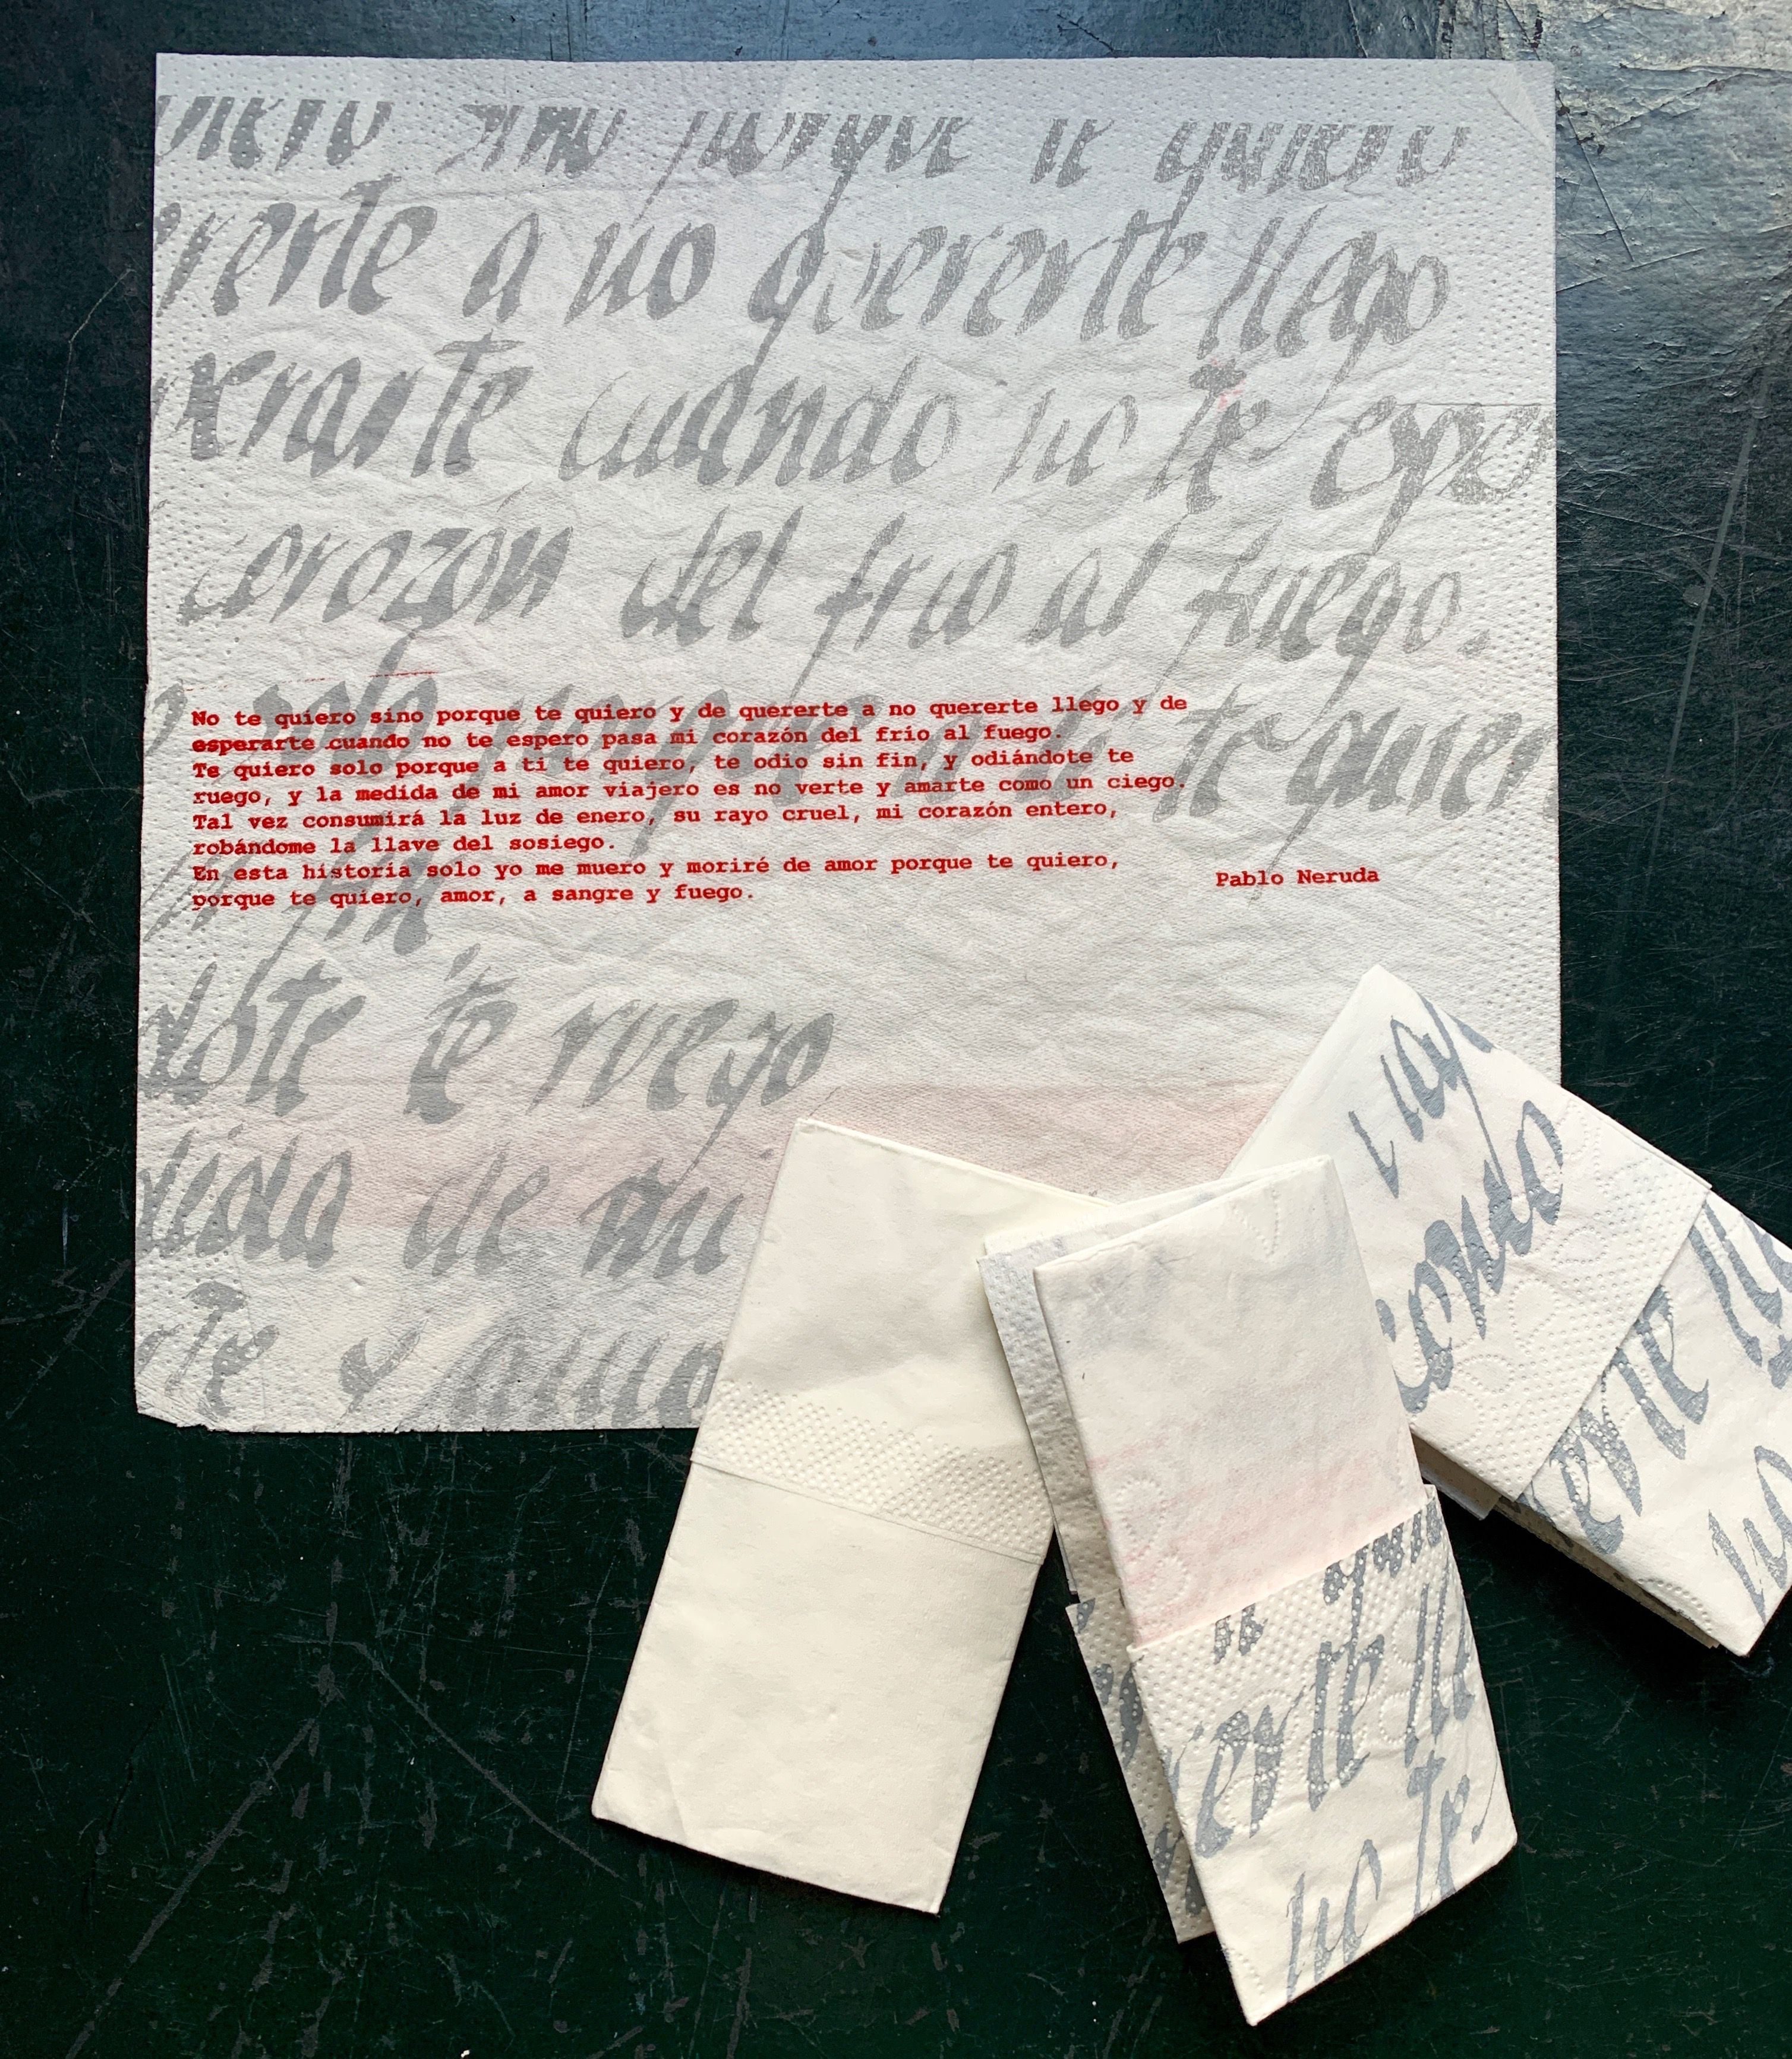 quiero sino porque te quiero
quererte a no quererte llego
esperarte cuando no te espe
corozón del frio al fuego.
solo porque a ti te quier
No te quiero sino porque te quiero y de quererte a no quererte llego y de
esperarte cuando no te espero pasa mi corazón del frío al fuego.
Te quiero solo porque a ti te quiero, te odio sin fin, y odiándote te
ruego, y la medida de mi amor viajero es no verte y amarte como un ciego.
Tal vez consumirá la luz de enero, su rayo cruel, mi corazón entero,
robándome la llave del sosiego.
En esta historia solo yo me muero y moriré de amor porque te quiero,
porque te quiero, amor, a sangre y fuego.
Pablo Neruda
dote te ruego
dida de mi
rte y ama
erte ll
no te